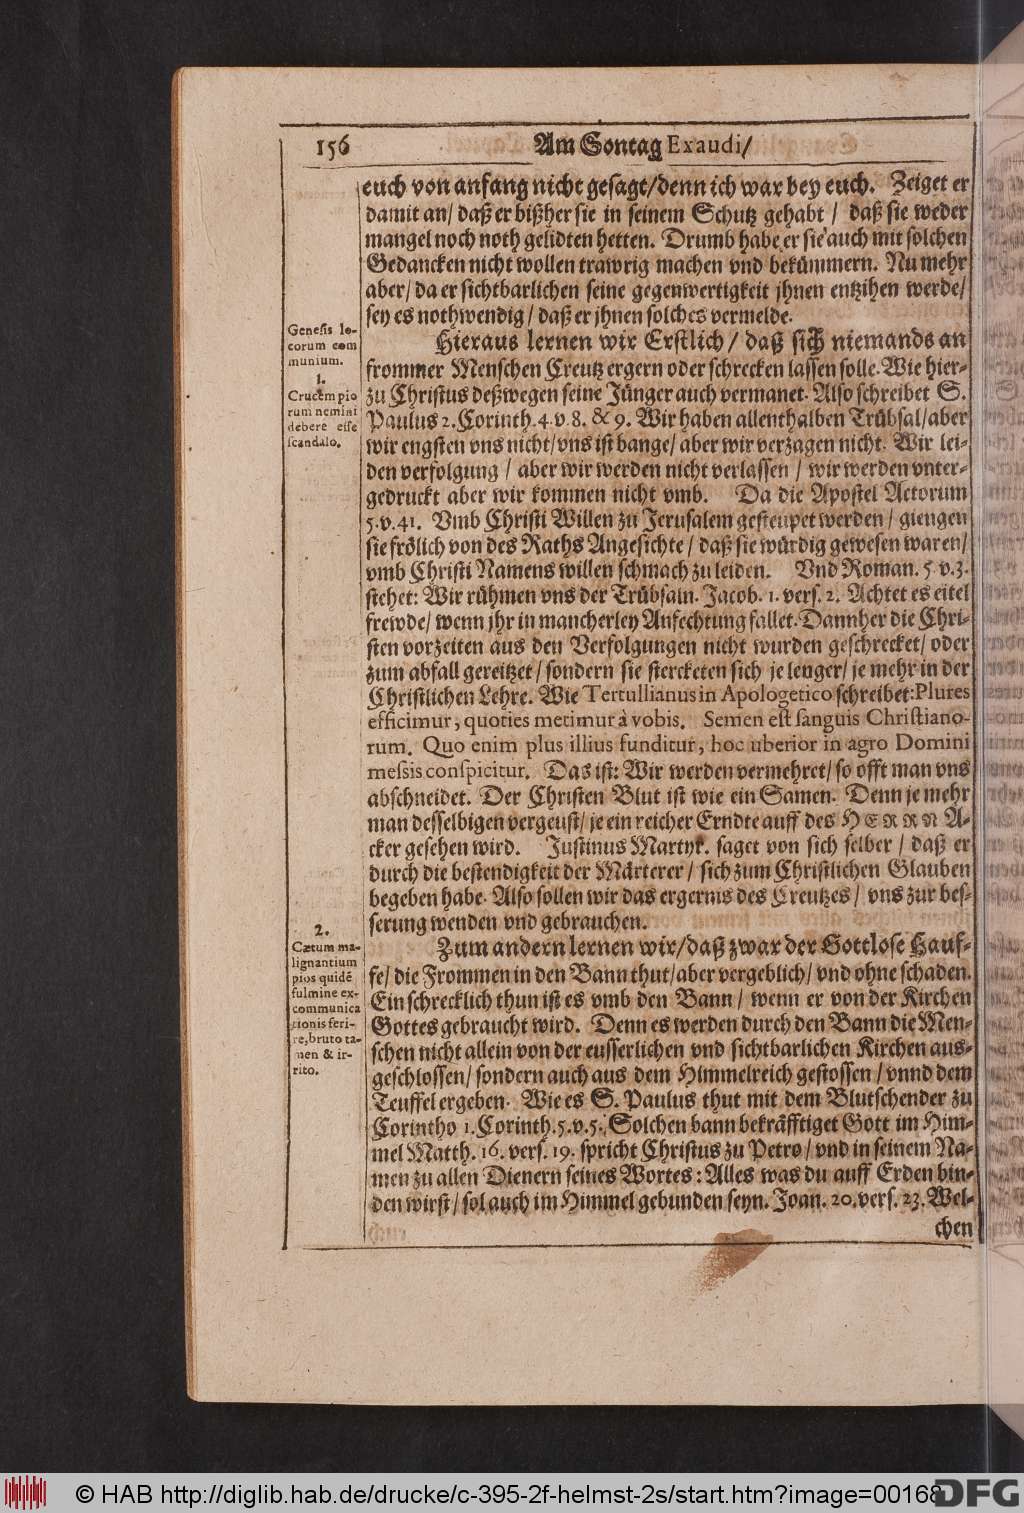 156 Am Sontag Exaudi/
euch von anfang nicht gesagt/denn ich war bey euch. Zeiget er
damit an/ daß er bißher sie in seinem Schutz gehabt / daß sie weder
mangel noch noth gelidten hetten. Drumb habe er sie auch mit solchen
Gedancken nicht wollen trawrig machen vnd bekümmern. Nu mehr
aber/ da er sichtbarlichen seine gegenwertigkeit jhnen entzihen werde/
sey es nothwendig/ daß er jhnen solches vermelde.
Genesis lo-
corum com
munium.
1.
Crucem pio
rum nemini
debere esse
scandalo.
Hieraus lernen wir Erstlich / daß sich niemands an
frommer Menschen Creutz ergern oder schrecken lassen solle. Wie hier-
zu Christus deßwegen seine Jünger auch vermanet. Also schreibet S.
Paulus 2. Corinth. 4. v. 8. & 9. Wir haben allenthalben Trübsal/aber
wir engsten vns nicht/vns ist bange/ aber wir verzagen nicht. Wir lei-
den verfolgung / aber wir werden nicht verlassen / wir werden vnter-
gedruckt aber wir kommen nicht vmb. Da die Apostel Actorum
5. v. 41. Vmb Christi Willen zu Jerusalem gesteupet werden / giengen
sie frölich von des Raths Angesichte / daß sie würdig gewesen waren/
vmb Christi Namens willen schmach zu leiden. Vnd Roman. 5 v. 3.
stehet: Wir rühmen vns der Trübsaln. Jacob. 1. vers. 2. Achtet es eitel
frewde/ wenn jhr in mancherley Anfechtung fallet. Dannher die Chri-
sten vorzeiten aus den Verfolgungen nicht wurden geschrecket/ oder
zum abfall gereitzet/ sondern sie sterckten sich je lenger/ je mehr in der
Christlichen Lehre. Wie Tertullianus in Apologetico schreibet: Plures
efficimur, quoties metimur à vobis. Semen est sanguis Christiano-
rum. Quo enim plus illius funditur, hoc uberior in agro Domini
messis conspicitur. Das ist: Wir werden vermehret/ so offt man vns
abschneidet. Der Christen Blut ist wie ein Samen. Denn je mehr
man desselbigen vergeust/ je ein reicher Erndte auff des HERRN A-
cker gesehen wird. Justinus Martyr. saget von sich selber / daß er
durch die bestendigkeit der Märterer / sich zum Christlichen Glauben
begeben habe. Also sollen wir das ergernis des Creutzes / vns zur bes-
serung wenden vnd gebrauchen.
2.
Cætum ma-
lignantium
pios quidē
fulmine ex-
communica
tionis feri-
re, bruto ta-
men & ir-
rito.
Zum andern lernen wir/daß zwar der Gottlose Hauf-
fe/ die Frommen in den Bann thut/aber vergeblich/ vnd ohne schaden.
Ein schrecklich thun ist es vmb den Bann / wenn er von der Kirchen
Gottes gebraucht wird. Denn es werden durch den Bann die Men-
schen nicht allein von der eusserlichen vnd sichtbarlichen Kirchen aus-
geschlossen/ sondern auch aus dem Himmelreich gestossen / vnnd dem
Teuffel ergeben. Wie es S. Paulus thut mit dem Blutschender zu
Corintho 1. Corinth. 5. v. 5. Solchen bann bekräfftiget Gott im Him-
mel Matth. 16. vers. 19. spricht Christus zu Petro / vnd in seinem Na-
men zu allen Dienern seines Wortes: Alles was du auff Erden bin-
den wirst / sol auch im Himmel gebunden seyn. Joan. 20. vers. 23. Wel-
chen
© HAB http://diglib.hab.de/drucke/c-395-2f-helmst-2s/start.htm?image=00168
DFG